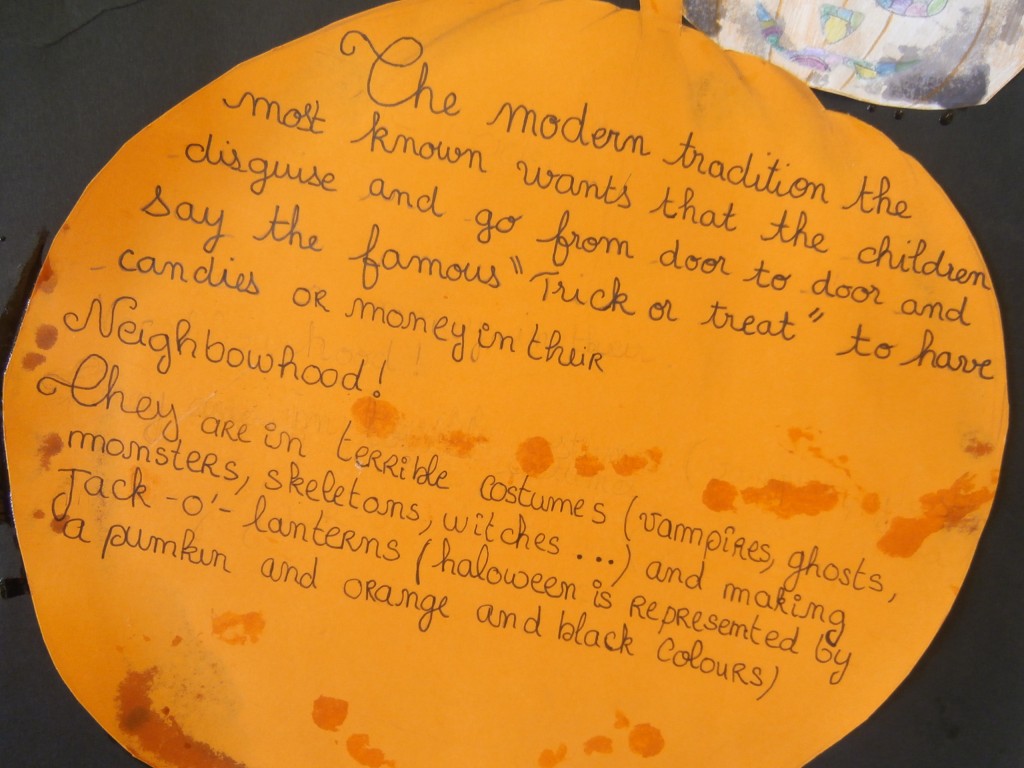 The modern tradition the
most known wants that the children
disguise and go from door to door and
say the famous "Trick or treat" to have
candies or money in their
Neighbowhood!
They are in terrible costumes (vampires, ghosts,
monsters, skeletons, witches ...) and making
Jack-o'-lanterns (haloween is represented by
a pumkin and orange and black colours)